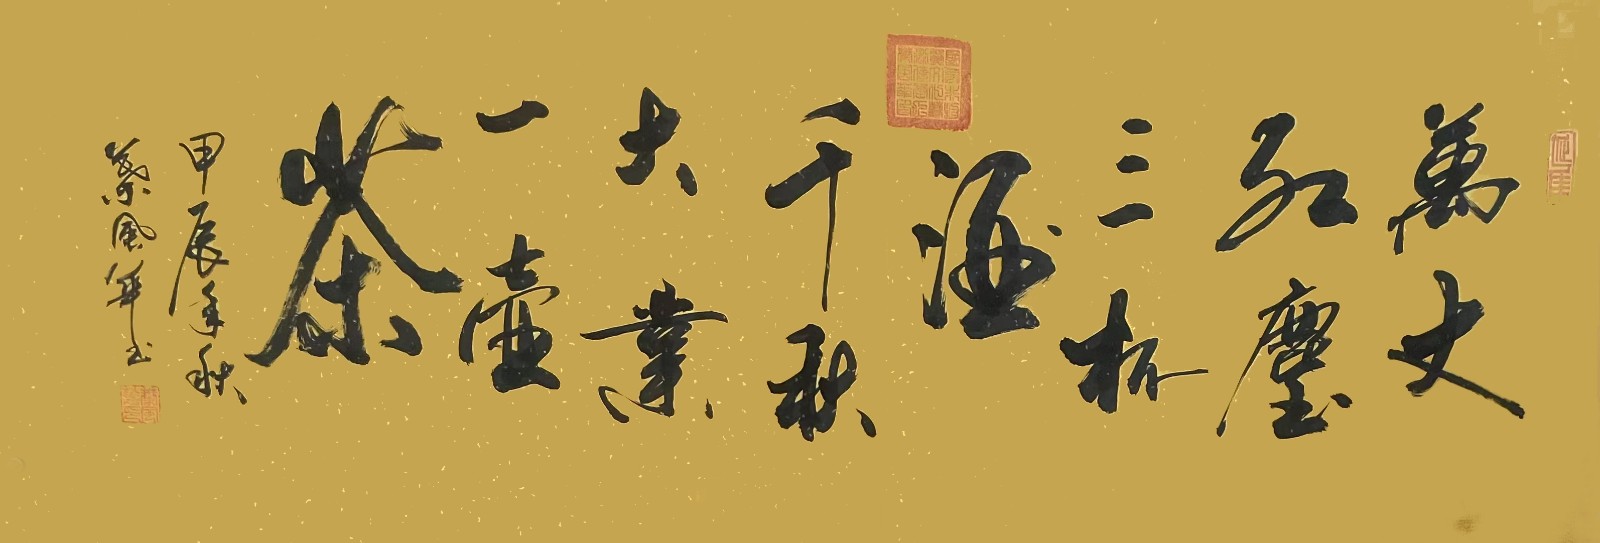 萬丈
紅塵
三杯
酒
千秋
大業
一壺
茶
甲辰年秋